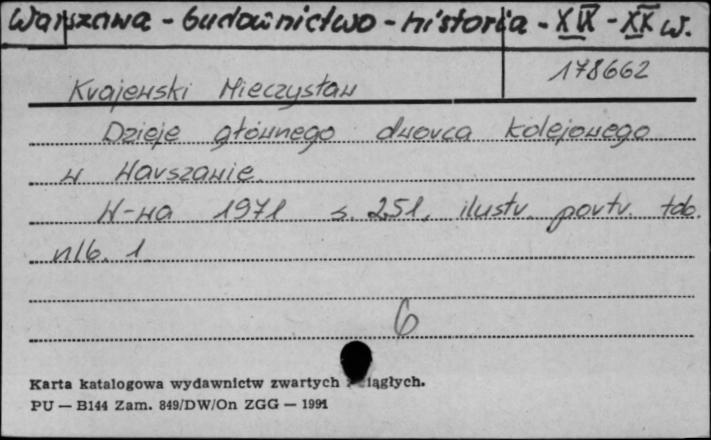 Warszawa - budownictwo - historia - XIX - XX w.
178662
Krajewski Mieczysław
Dzieje głównego dworca kolejowego
w Warszawie.
W-wa 1971 s. 251, ilustr. portr. tab.
nlb. 1
6
Karta katalogowa wydawnictw zwartych ciągłych.
PU — B144 Zam. 849/DW/On ZGG — 1991